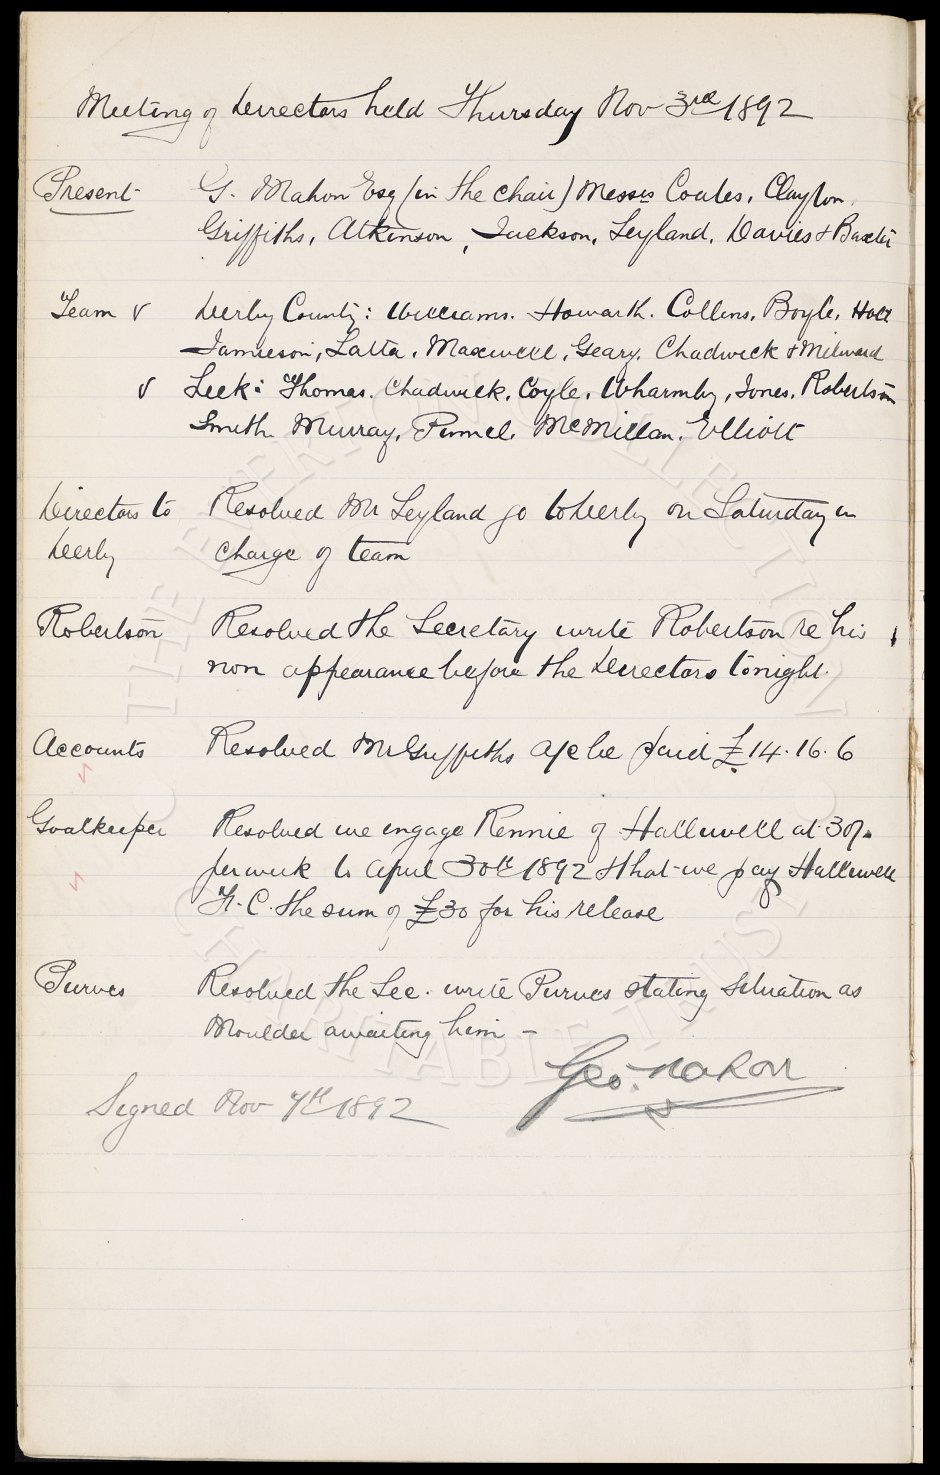 Meeting of Directors held Thursday Nov 3rd 1892
Present G. Mahon Esq (in the chair) Messrs Coates, Clayton,
Griffiths, Atkinson, Jackson, Leyland, Davies & Baxter
Team v Derby County: Williams. Howarth. Collins, Boyle, Holt
Jamieson, Latta, Maxwell, Geary, Chadwick & Milward
v Leek: Thomas. Chadwick, Coyle, Wharmby, Jones, Robertson
Smith Murray, Pinnel, McMillan, Elliott
Directors to Resolved Mr Leyland go to Derby on Saturday in
Derby charge of team
Robertson Resolved the Secretary write Robertson re his
non appearance before the Directors tonight.
Accounts Resolved Mr Griffiths a/c be paid £14.16.6
Goalkeeper Resolved we engage Rennie of Halliwell at 30/-
per week to April 30th 1892 & that we pay Halliwell
F.C. the sum of £30 for his release
Purves Resolved the Sec. write Purves stating situation as
Moulder awaiting him -
Geo. Mahon
Signed Nov 7th 1892
THE EVERTON COLLECTION CHARITABLE TRUST